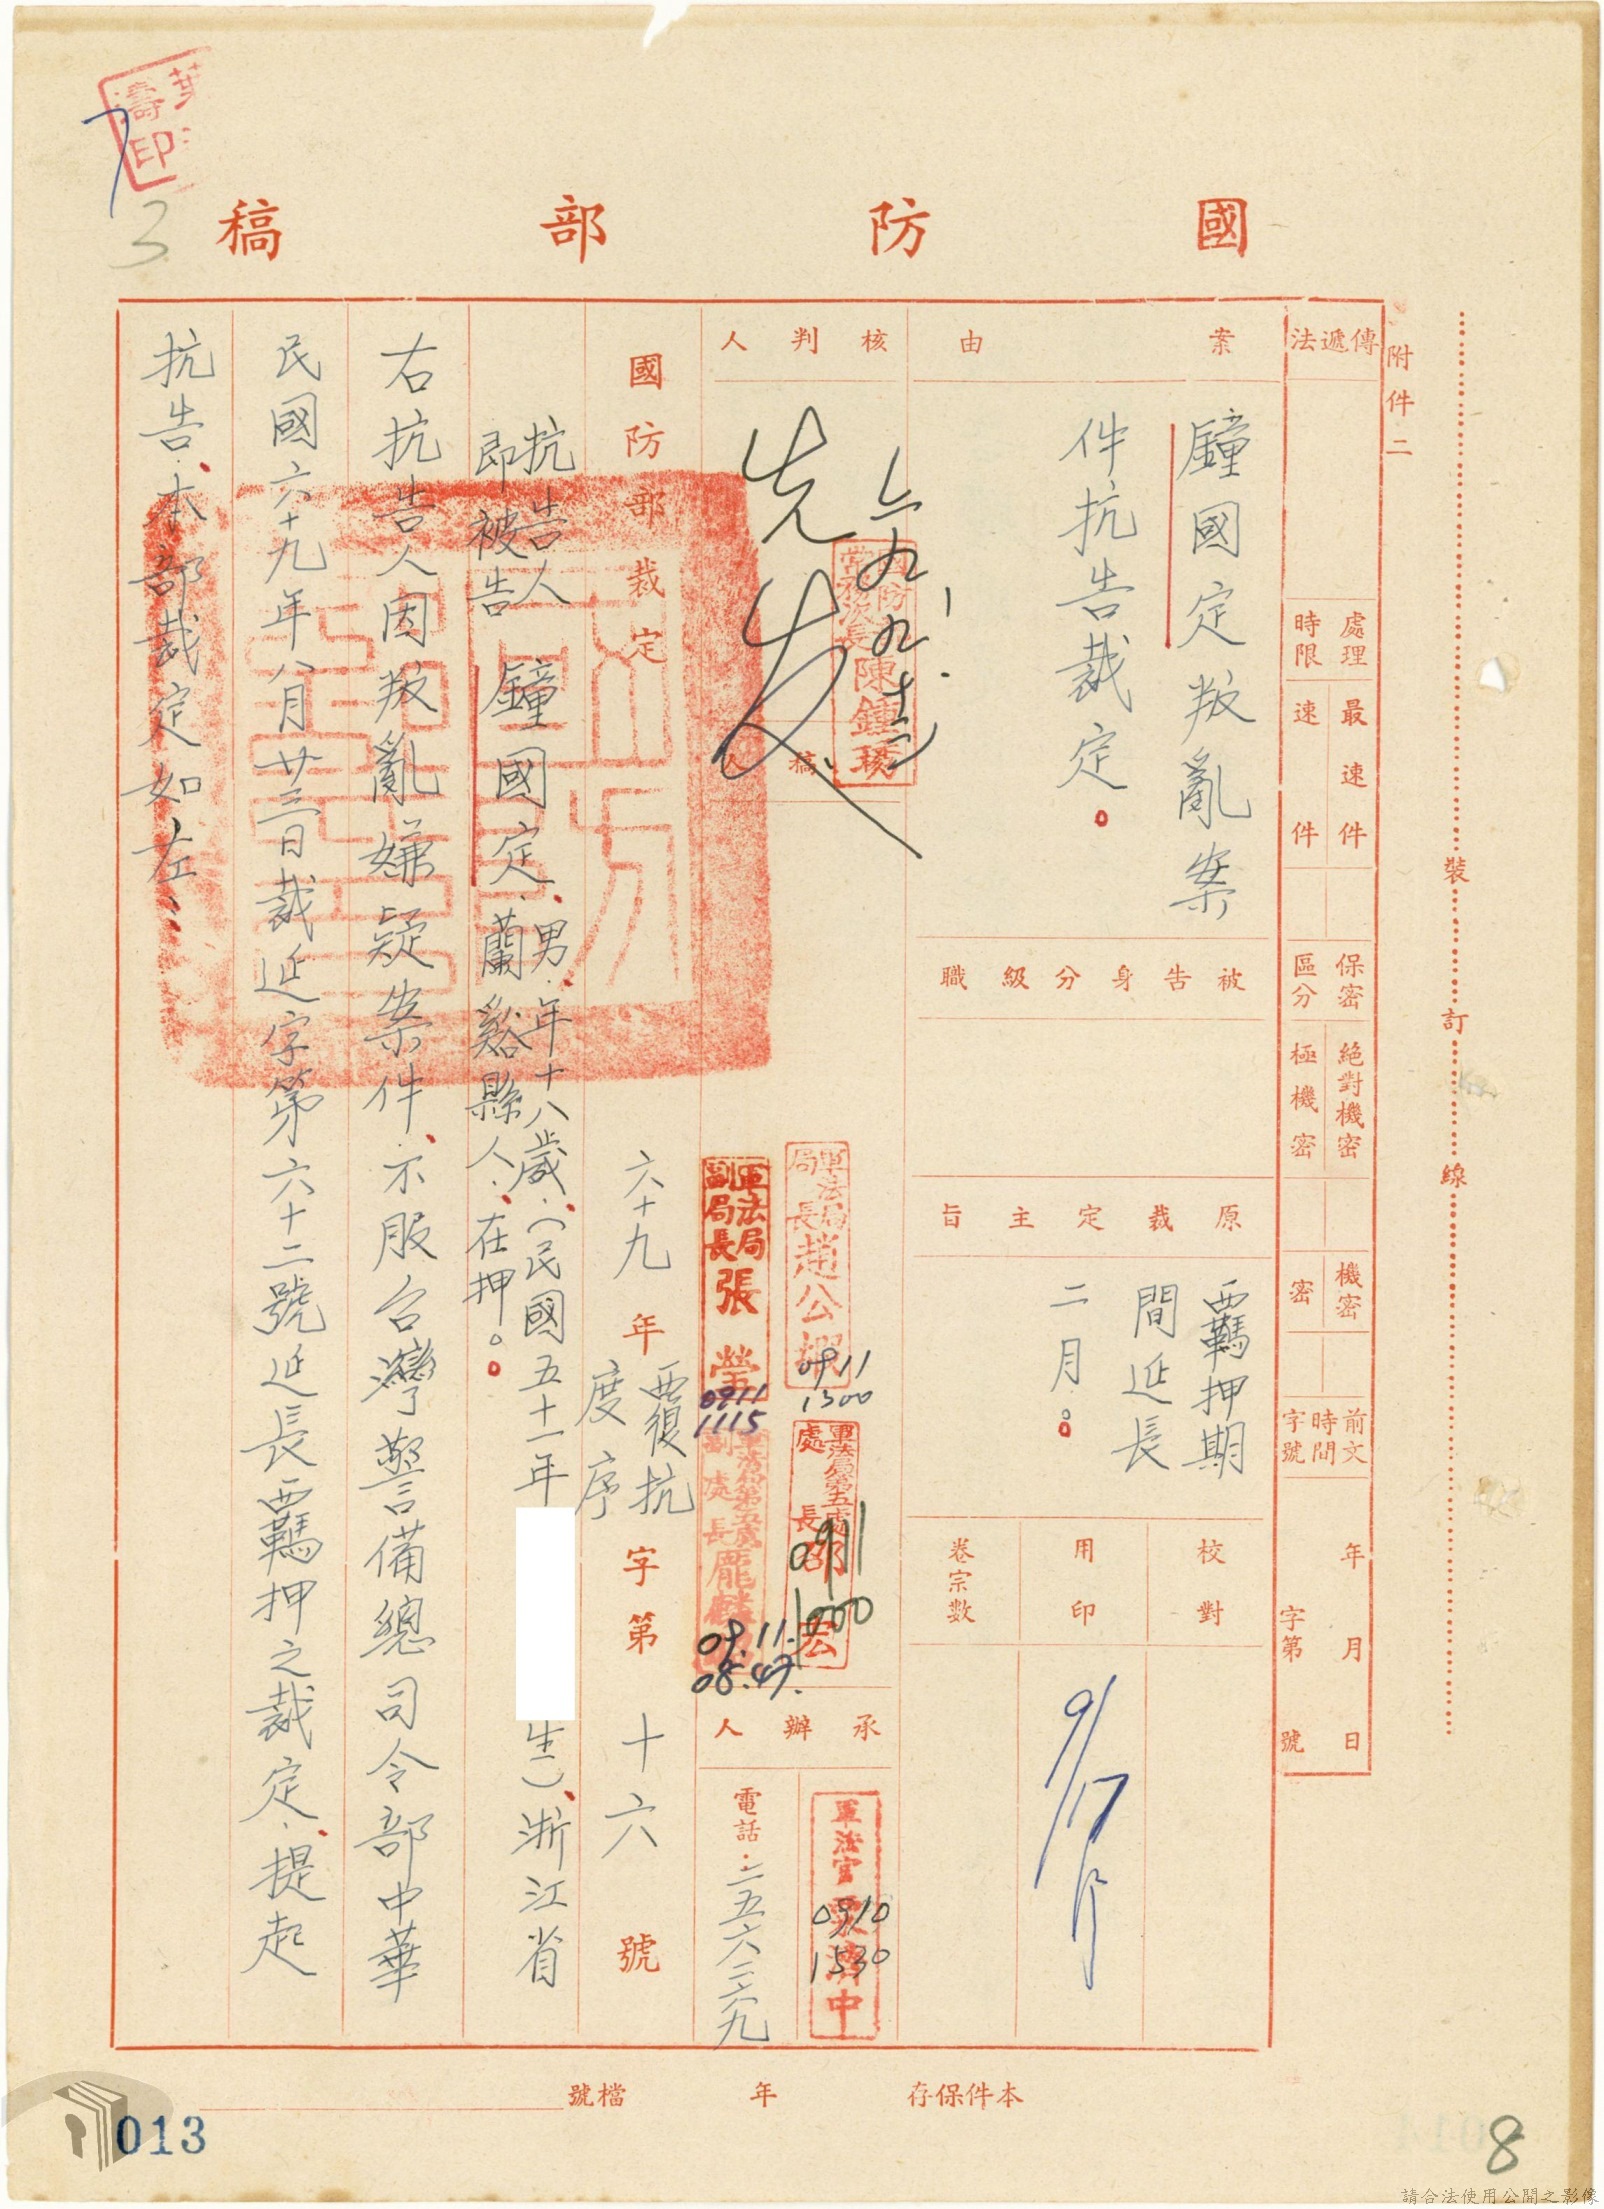 國防部稿
附件二
傳遞法
處理時限
最速件
速件
保密區分
絕對機密
極機密
機密
密
前文時間字號
年月日
字第號
案由
鍾國定叛亂案
件抗告裁定。
被告身分級職
原裁定主旨
羈押期
間延長
二月。
校對
用印
9/17
卷宗數
核判人
國防部
常務次長陳鍾琇
六九、九、十二
稿人
軍法局
局長趙公嘏
0911
1300
軍法局
副局長張瑩
0911
1115
軍法局第五處
處長邵宏
0911
1000
軍法局第五處
副處長龐
09.11.
08.47.
承辦人
軍法官
濟中
0910
1530
電話:二五六三六九
國防部裁定
六十九年度覆抗序字第十六號
抗告人
即被告
鍾國定、男、年十八歲、(民國五十一年
生)、浙江省
蘭谿縣人、在押。
右抗告人因叛亂嫌疑案件、不服台灣警備總司令部中華
民國六十九年八月廿三日裁延字第六十二號延長羈押之裁定、提起
抗告、本部裁定如左:
裝訂線
本件保存年
檔號
濤印
3
013
8
請合法使用公開之影像